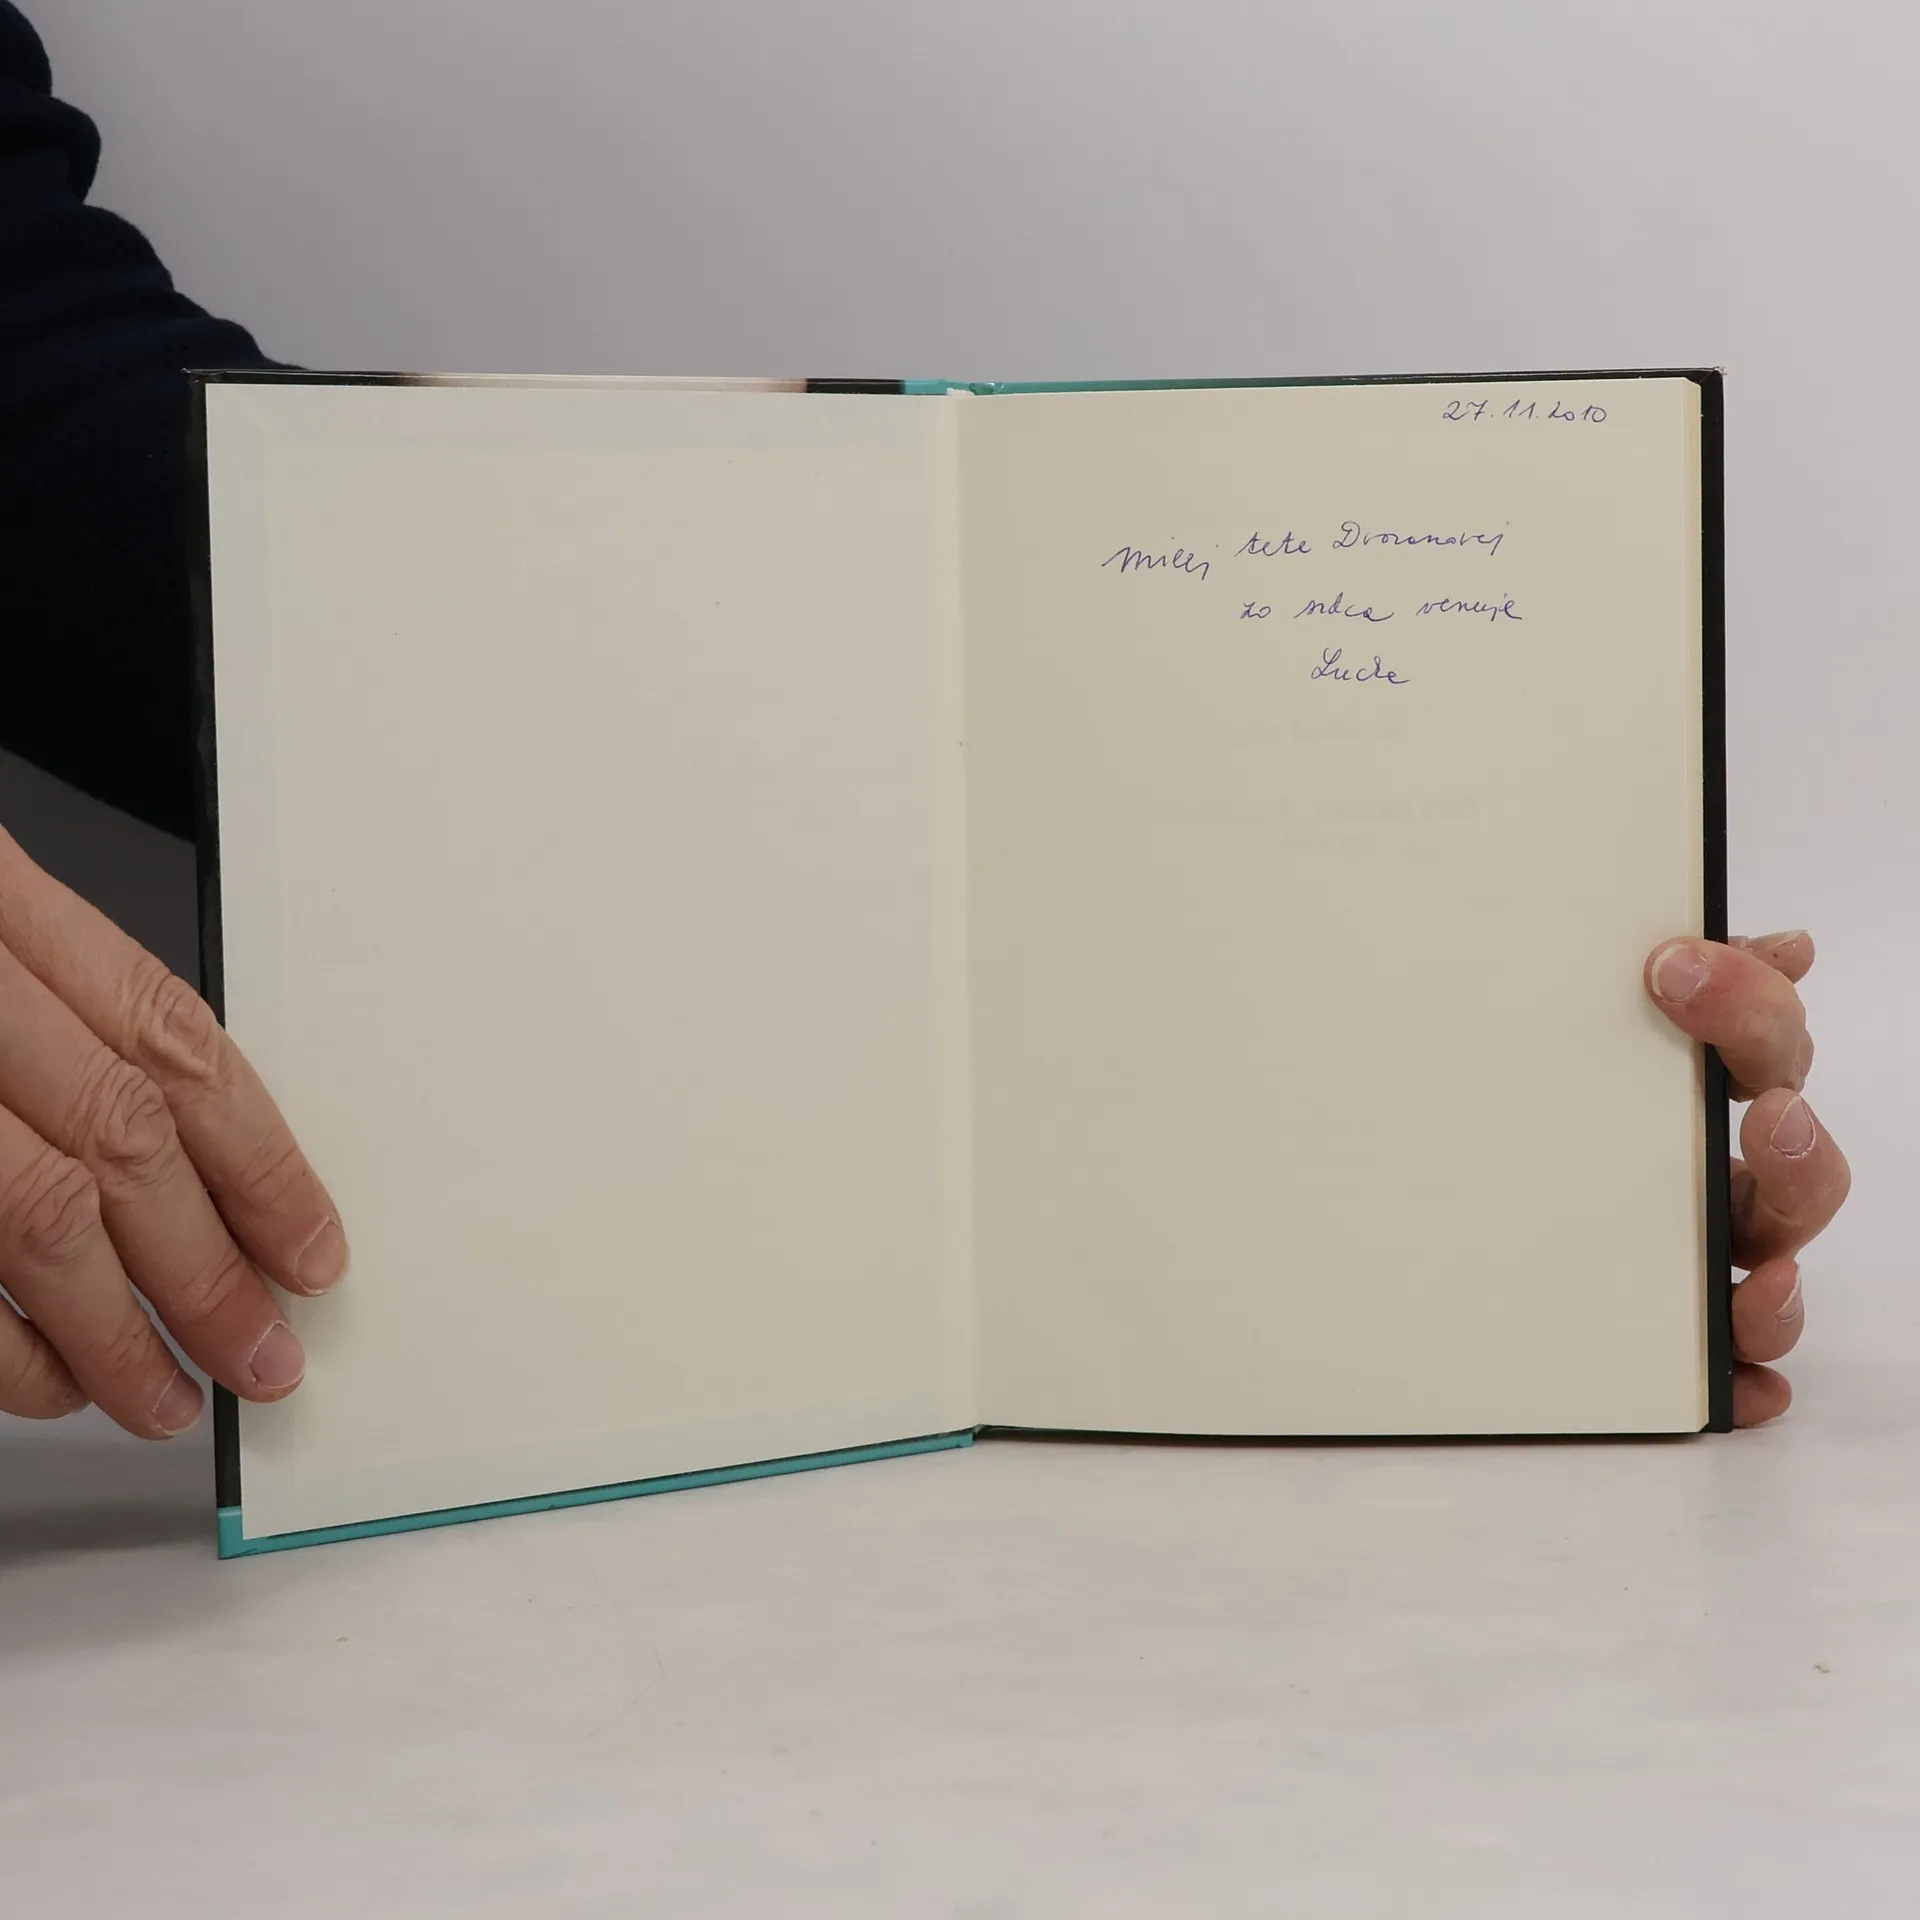 27.11.2010
Milej tete Dvoranovej
zo srdca venuje